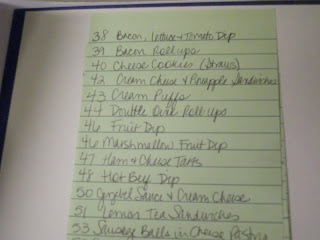 38 Bacon, lettuce & Tomato Dip
39 Bacon Rollups
40 Cheese Cookies (Straws)
42 Cream Cheese & Pineapple Sandwiches
43 Cream Puffs
44 Double Owie Roll-ups
46 Fruit Dip
46 Marshmallow Fruit Dip
47 Ham & Cheese Tarts
48 Hot Beef Dip
50 Jezebel Sauce & Cream Cheese
51 Lemon Tea Sandwiches
53 Sausage Balls in Cheese Pastry